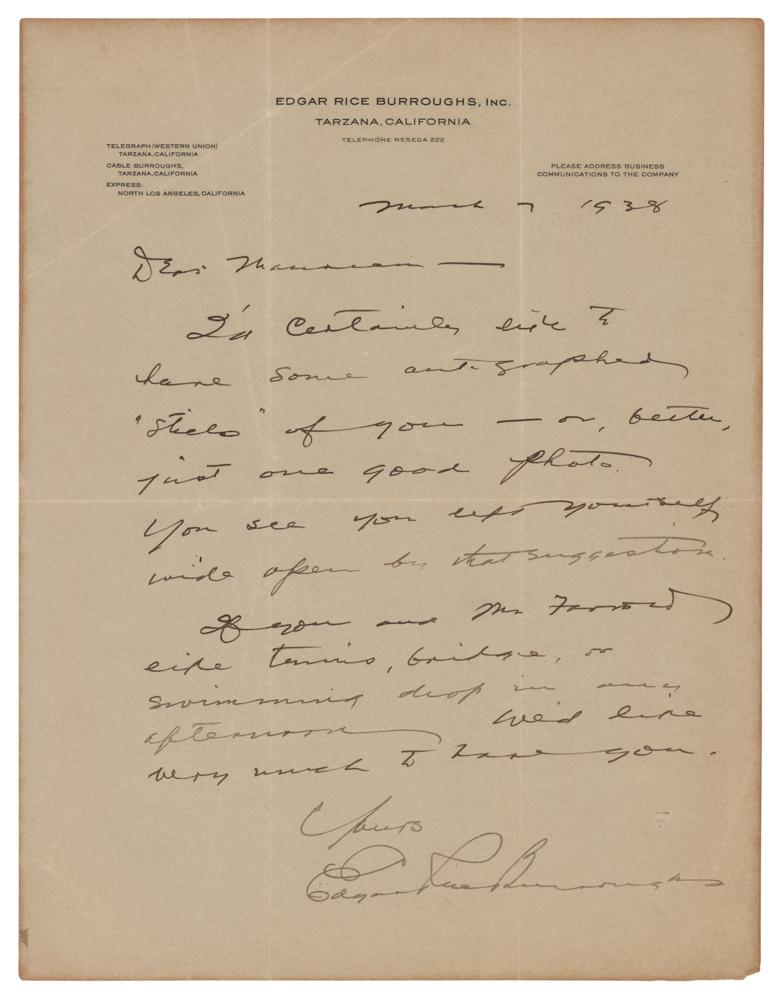 EDGAR RICE BURROUGHS, INC.
TARZANA, CALIFORNIA
TELEPHONE RESEDA 222
TELEGRAPH (WESTERN UNION)
TARZANA, CALIFORNIA
CABLE-BURROUGHS,
TARZANA, CALIFORNIA
EXPRESS:
NORTH LOS ANGELES, CALIFORNIA
PLEASE ADDRESS BUSINESS
COMMUNICATIONS TO THE COMPANY
March 7 1938
Dear Maureen —
I'd certainly like to
have some autographed
"stills" of you — or, better,
just one good photo.
You see you left yourself
wide open by that suggestion.
If you and Mr Farrow
like tennis, bridge, or
swimming drop in any
afternoon We'd like
very much to have you.
Yours
Edgar Rice Burroughs